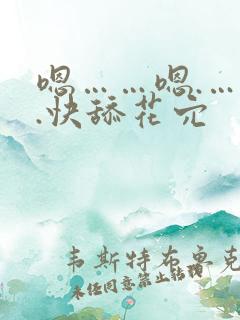 嗯……嗯……
.快舔花穴
韦斯特布鲁克
未经同意禁止转载